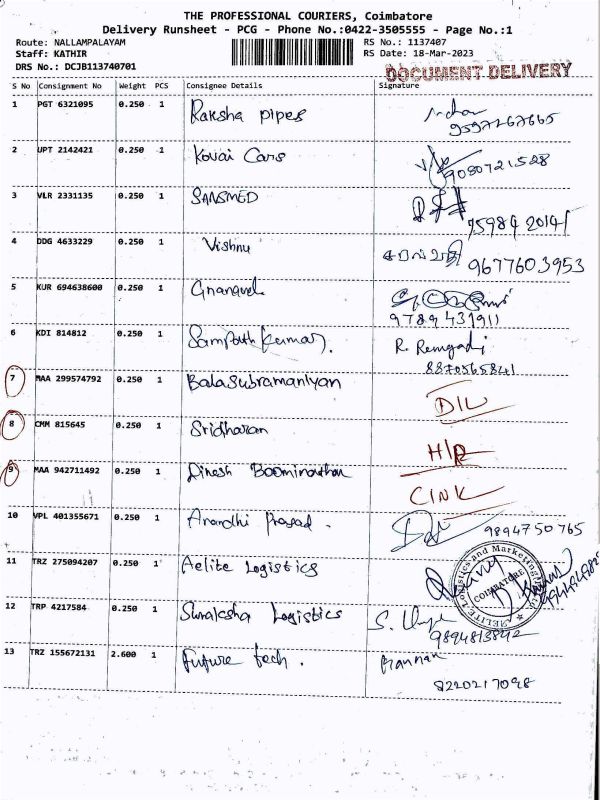 THE PROFESSIONAL COURIERS, Coimbatore
Delivery Runsheet - PCG - Phone No.:0422-3505555 - Page No.:1
Route: NALLAMPALAYAM RS No.: 1137407
Staff: KATHIR RS Date: 18-Mar-2023
DRS No.: DCJB113740701 DOCUMENT DELIVERY
S No Consignment No Weight PCS Consignee Details Signature
1 PGT 6321095 0.250 1 Raksha pipes
9597267665
2 UPT 2142421 0.250 1 Kovai Cars
9080721528
3 VLR 2331135 0.250 1 SANSMED
4 DDG 4633229 0.250 1 Vishnu
9677603953
5 KUR 694638600 0.250 1 Gnanavel
9789431911
6 KDI 814812 0.250 1 Sampath kumar. R.
8870565841
7 MAA 299574792 0.250 1 Balasubramaniyan D/L
8 CMM 815645 0.250 1 Sridharan H/R
9 MAA 942711492 0.250 1 Dinesh Boominathan
CINK
10 VPL 401355671 0.250 1 Anandhi Prasad. 9894750765
11 TRZ 275094207 0.250 1 Aelite Logistics
COIMBATORE
12 TRP 4217584 0.250 1 Suraksha Logistics S.
9894813842
13 TRZ 155672131 2.600 1 Future tech. Kannan
8220217098